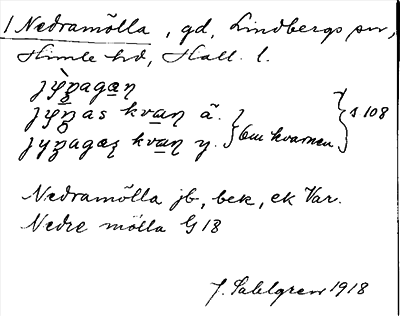 1 Nedramölla, gd, Lindbergs sn,
Himle hd, Hall. l.
kvan ä.
kvan y. } om kvarnen } s 108
Nedramölla jb, bek, ek Var.
Nedre mölla G 18
J. Sahlgren 1918